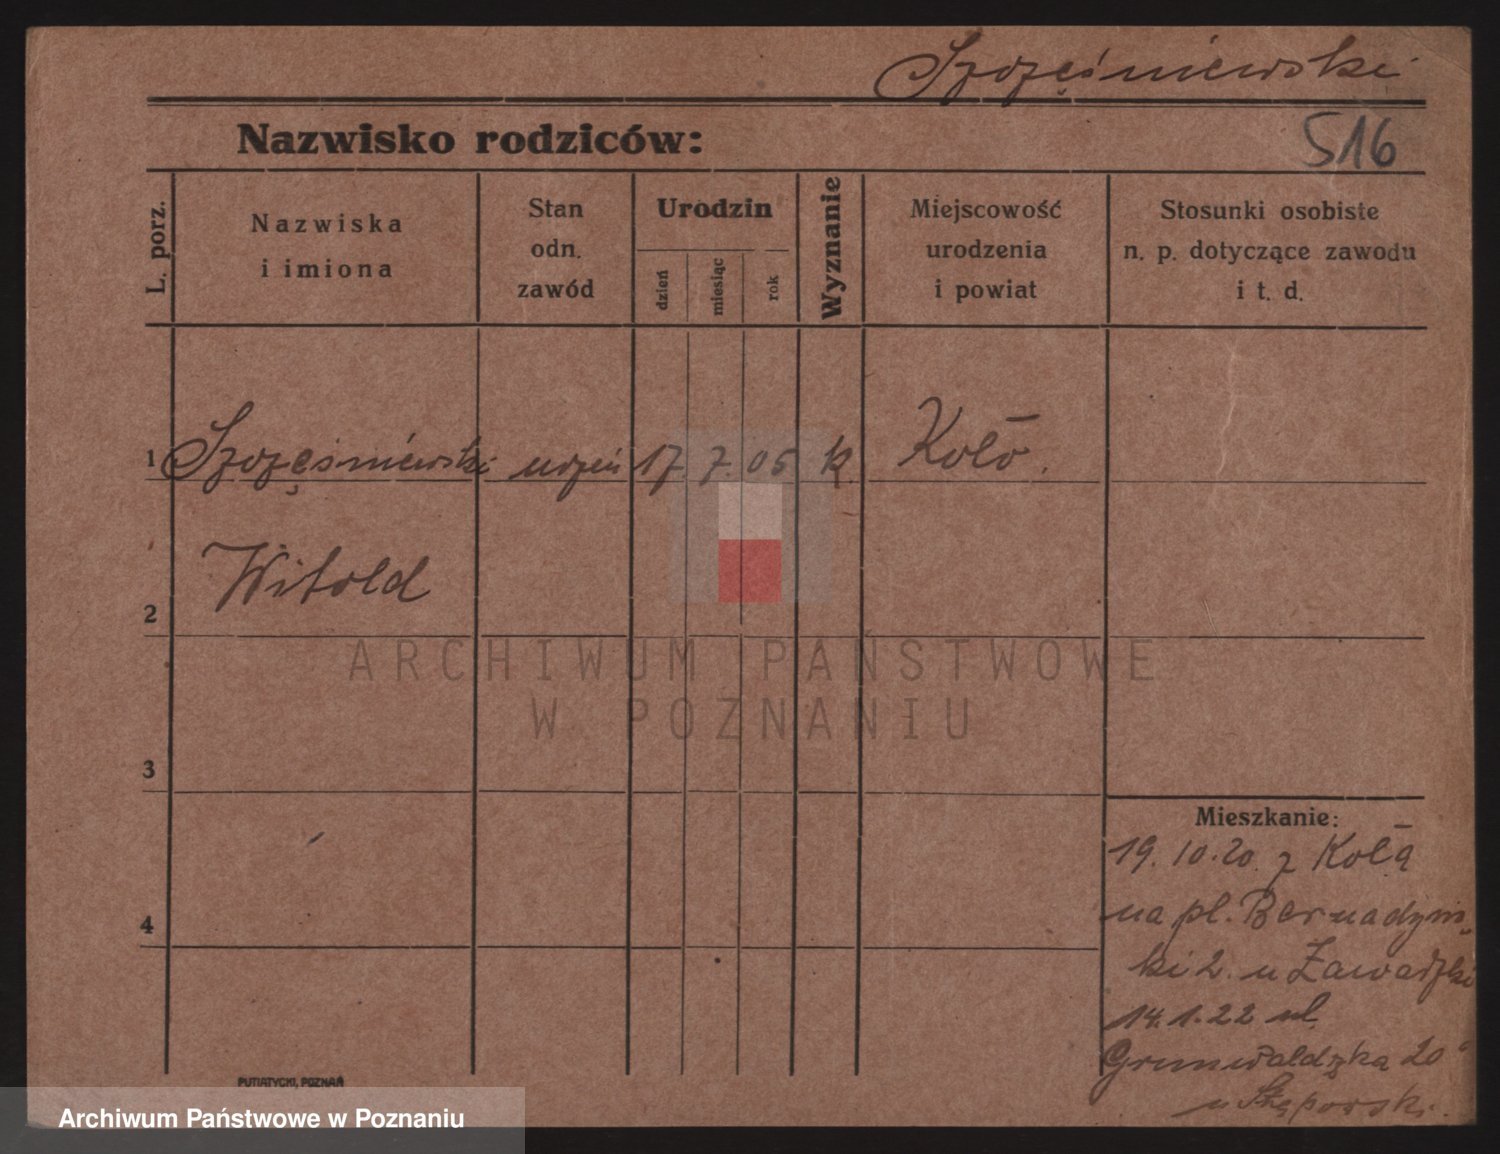 Szczęśniewski
Nazwisko rodziców:
516
L. porz.
Nazwiska
i imiona
Stan
odn.
zawód
Urodzin
dzień
miesiąc
rok
Wyznanie
Miejscowość
urodzenia
i powiat
Stosunki osobiste
n. p. dotyczące zawodu
i t. d.
1 Szczęśniewski uczeń 17. 7. 05 k. Koło.
Witold
2
ARCHIWUM PAŃSTWOWE
W POZNANIU
3
Mieszkanie:
19.10.20. z Koła
na pl. Bernadyń-
4
ski 2. u Zawadzki
14.1.22 ul.
Grunwaldzka 20
u
PUTIATYCKI, POZNAŃ
Archiwum Państwowe w Poznaniu